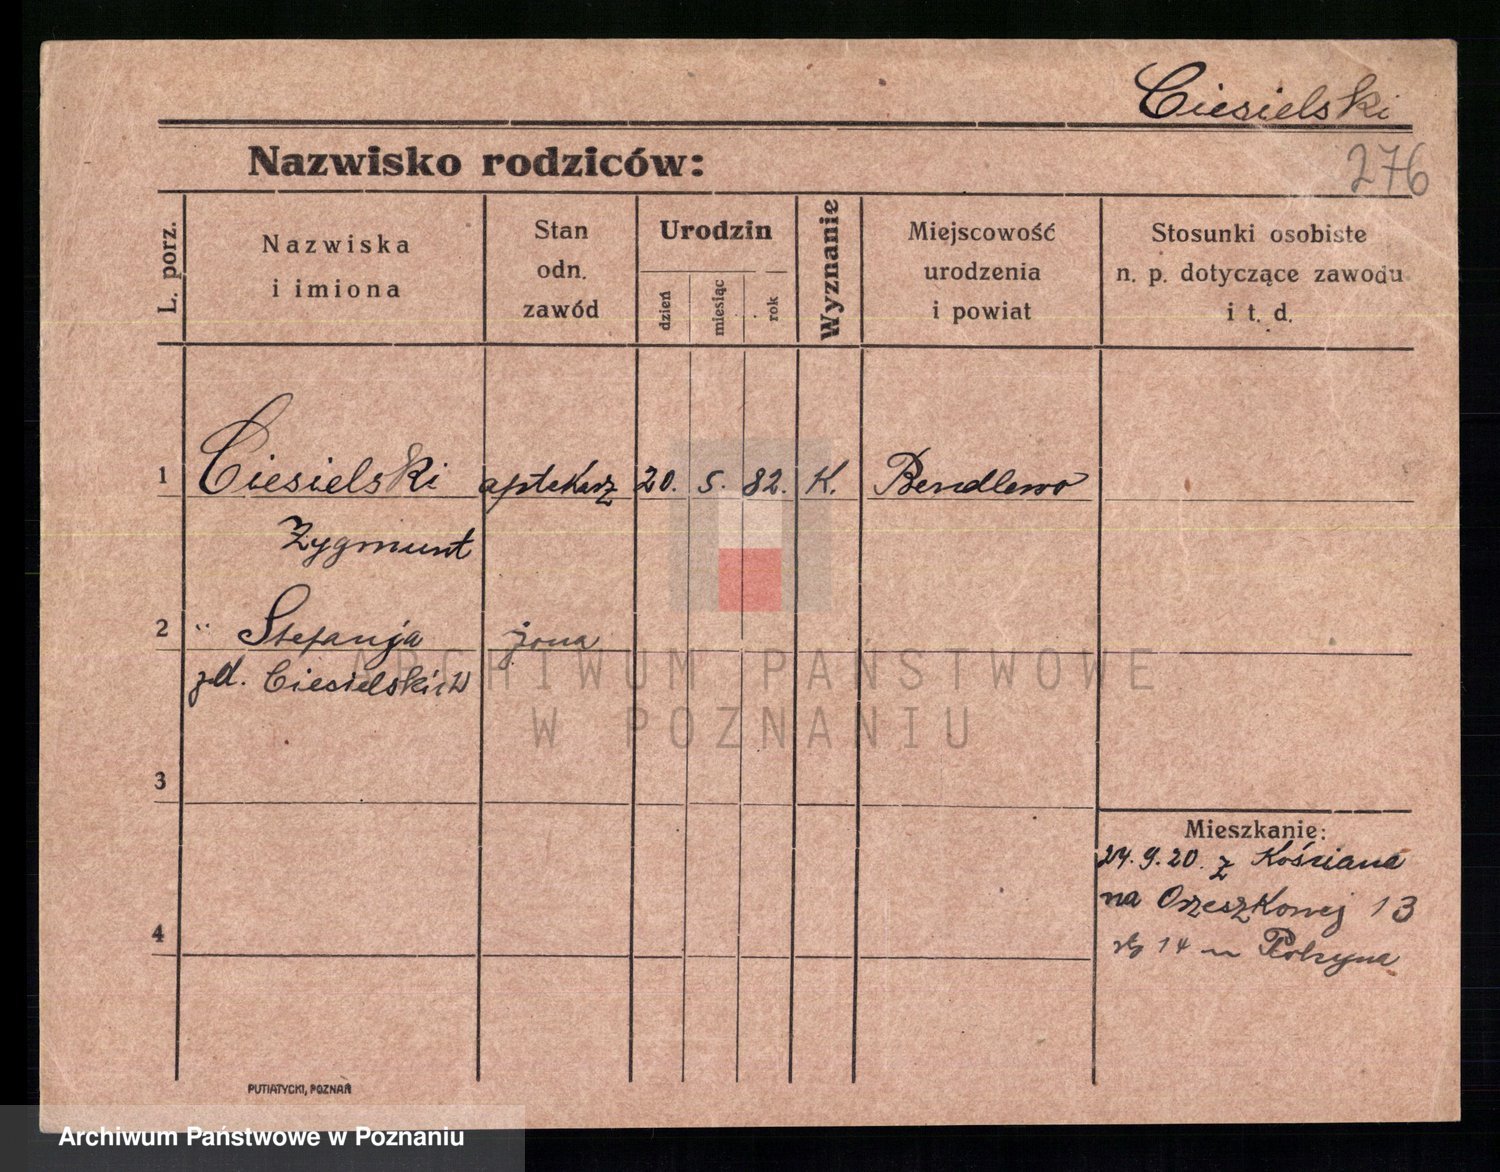 Ciesielski
Nazwisko rodziców:
276
L. porz.
Nazwiska
i imiona
Stan
odn.
zawód
Urodzin
dzień
miesiąc
rok
Wyznanie
Miejscowość
urodzenia
i powiat
Stosunki osobiste
n. p. dotyczące zawodu
i t. d.
1 Ciesielski aptekarz 20. 5. 82. K. Bendlewo
Zygmunt
2 " Stefanja żona
zd. Ciesielskich
ARCHIWUM PAŃSTWOWE
W POZNANIU
3
Mieszkanie:
24. 9. 20. z Kościana
na Orzeszkowej 13
4
14
PUTIATYCKI, POZNAŃ
Archiwum Państwowe w Poznaniu